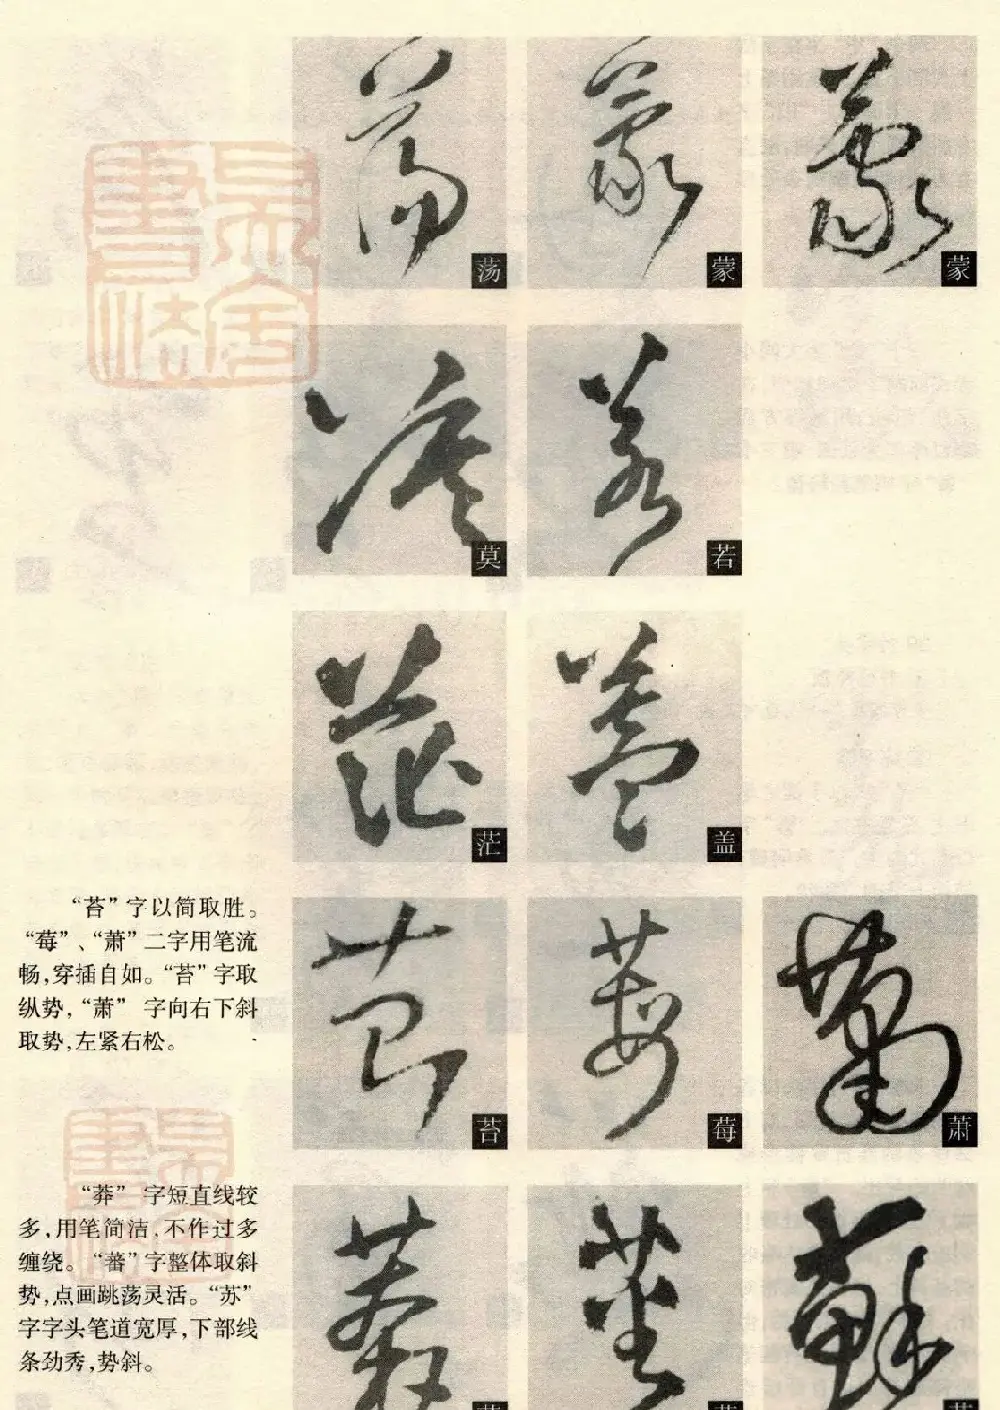 荡
蒙
蒙
莫
若
茫
盖
“苔”字以简取胜。
“莓”、“萧”二字用笔流
畅,穿插自如。“苔”字取
纵势,“萧” 字向右下斜
取势,左紧右松。
苔
莓
萧
“莽” 字短直线较
多,用笔简洁,不作过多
缠绕。“蕃”字整体取斜
势,点画跳荡灵活。“苏”
字字头笔道宽厚,下部线
条劲秀,势斜。